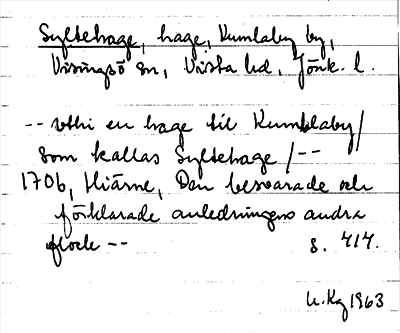 Syltehage, hage, Kumlaby by,
Visingsö sn, Vista hd, Jönk. l.
-- uthi en hage til Kumblaby/
som kallas Syltehage /--
1706, Hiärne, Den besvarade och
förklarade anledningens andra
flock -- s. 414.
U.Kg 1963